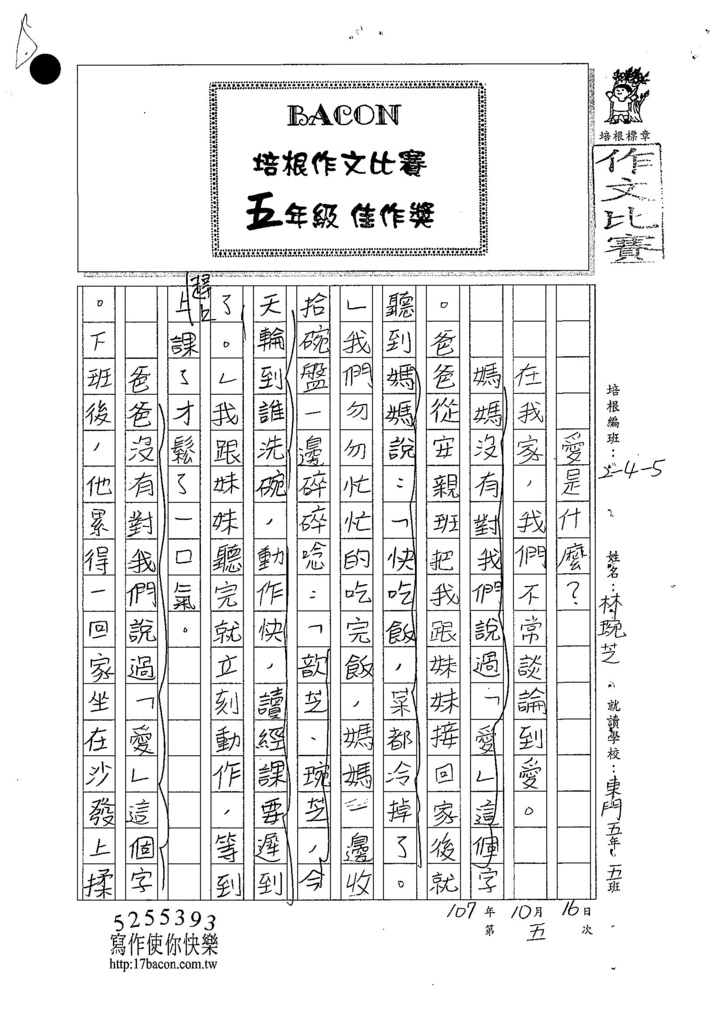 BACON
培根作文比賽
五年級 佳作獎
培根標章
作文比賽
培根編班：2-4-5
姓名：林琬芝
就讀學校：東門五年五班
愛是什麼？
在我家，我們不常談論到愛。
媽媽沒有對我們說過「愛」這個字
。爸爸從安親班把我跟妹妹接回家後就
聽到媽媽說：「快吃飯，菜都冷掉了。
」我們匆匆忙忙的吃完飯，媽媽一邊收
拾碗盤一邊碎碎唸：「歆芝、琬芝，今
天輪到誰洗碗，動作快，讀經課要遲到
了。」我跟妹妹聽完就立刻動作，等到
趕上
上課了才鬆了一口氣。
爸爸沒有對我們說過「愛」這個字
。下班後，他累得一回家坐在沙發上揉
107年10月16日
第五次
5255393
寫作使你快樂
http:17bacon.com.tw